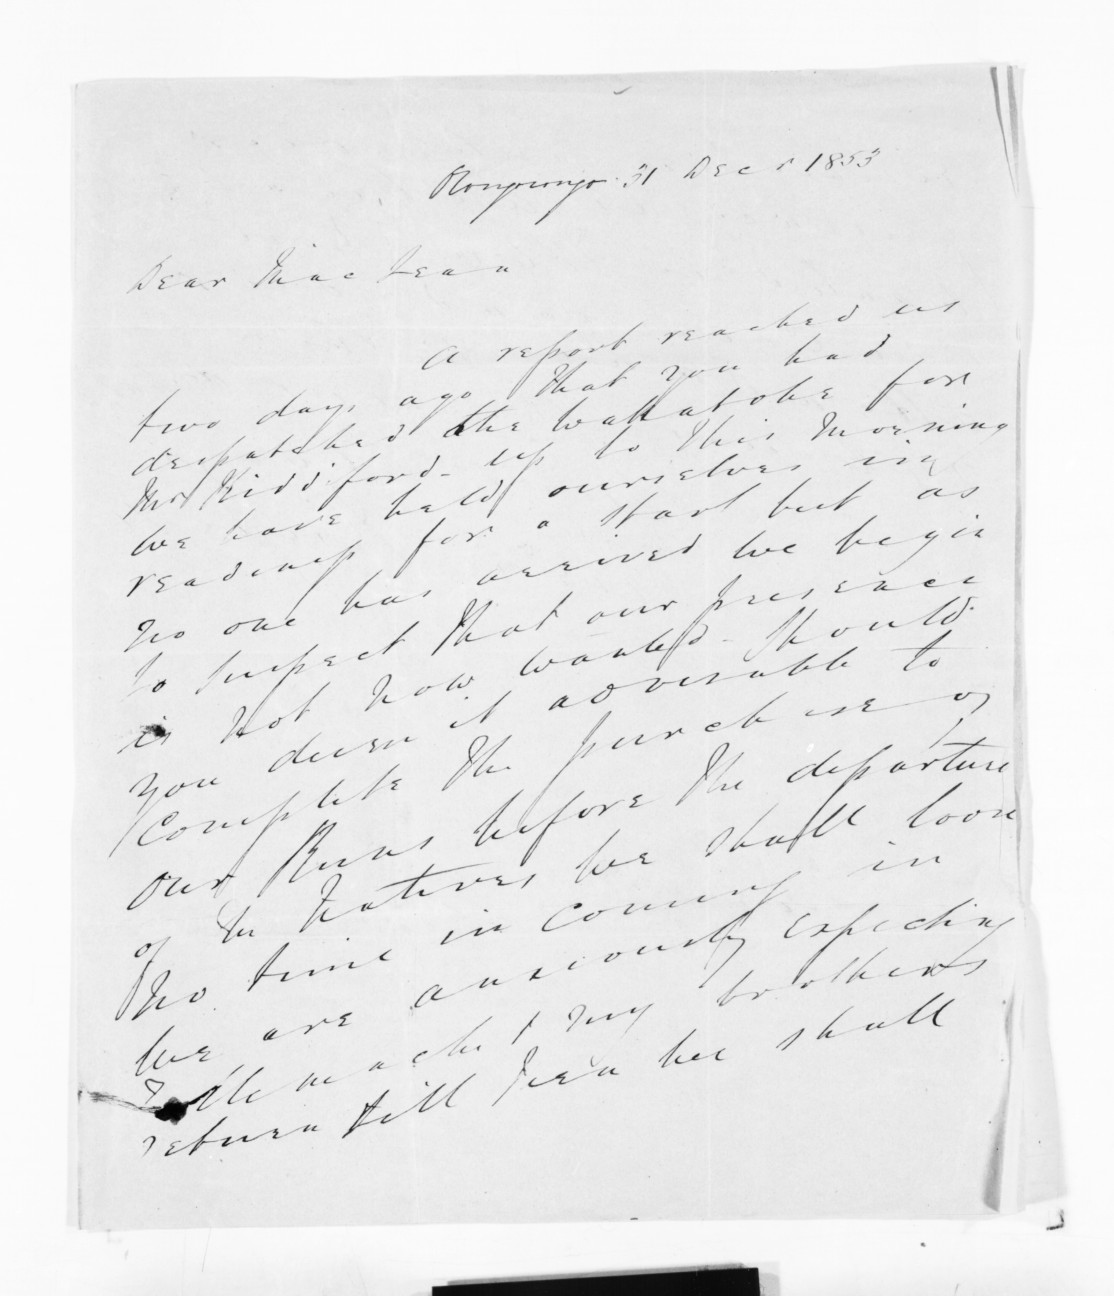 31 Decr 1853
Dear MacLean
A report reached us
two days ago that you had
despatched the Wallatobe for
Mr Kiddiford - up to this Morning
we have held ourselves in
readiness for a start but as
no one has arrived we begin
to suspect that our presence
is not now wanted - Should
you deem it advisable to
Complete the purchase of
our Runs before the departure
of the Natives we shall loose
no time in coming in
We are anxiously expecting
& my brothers
return till then we shall